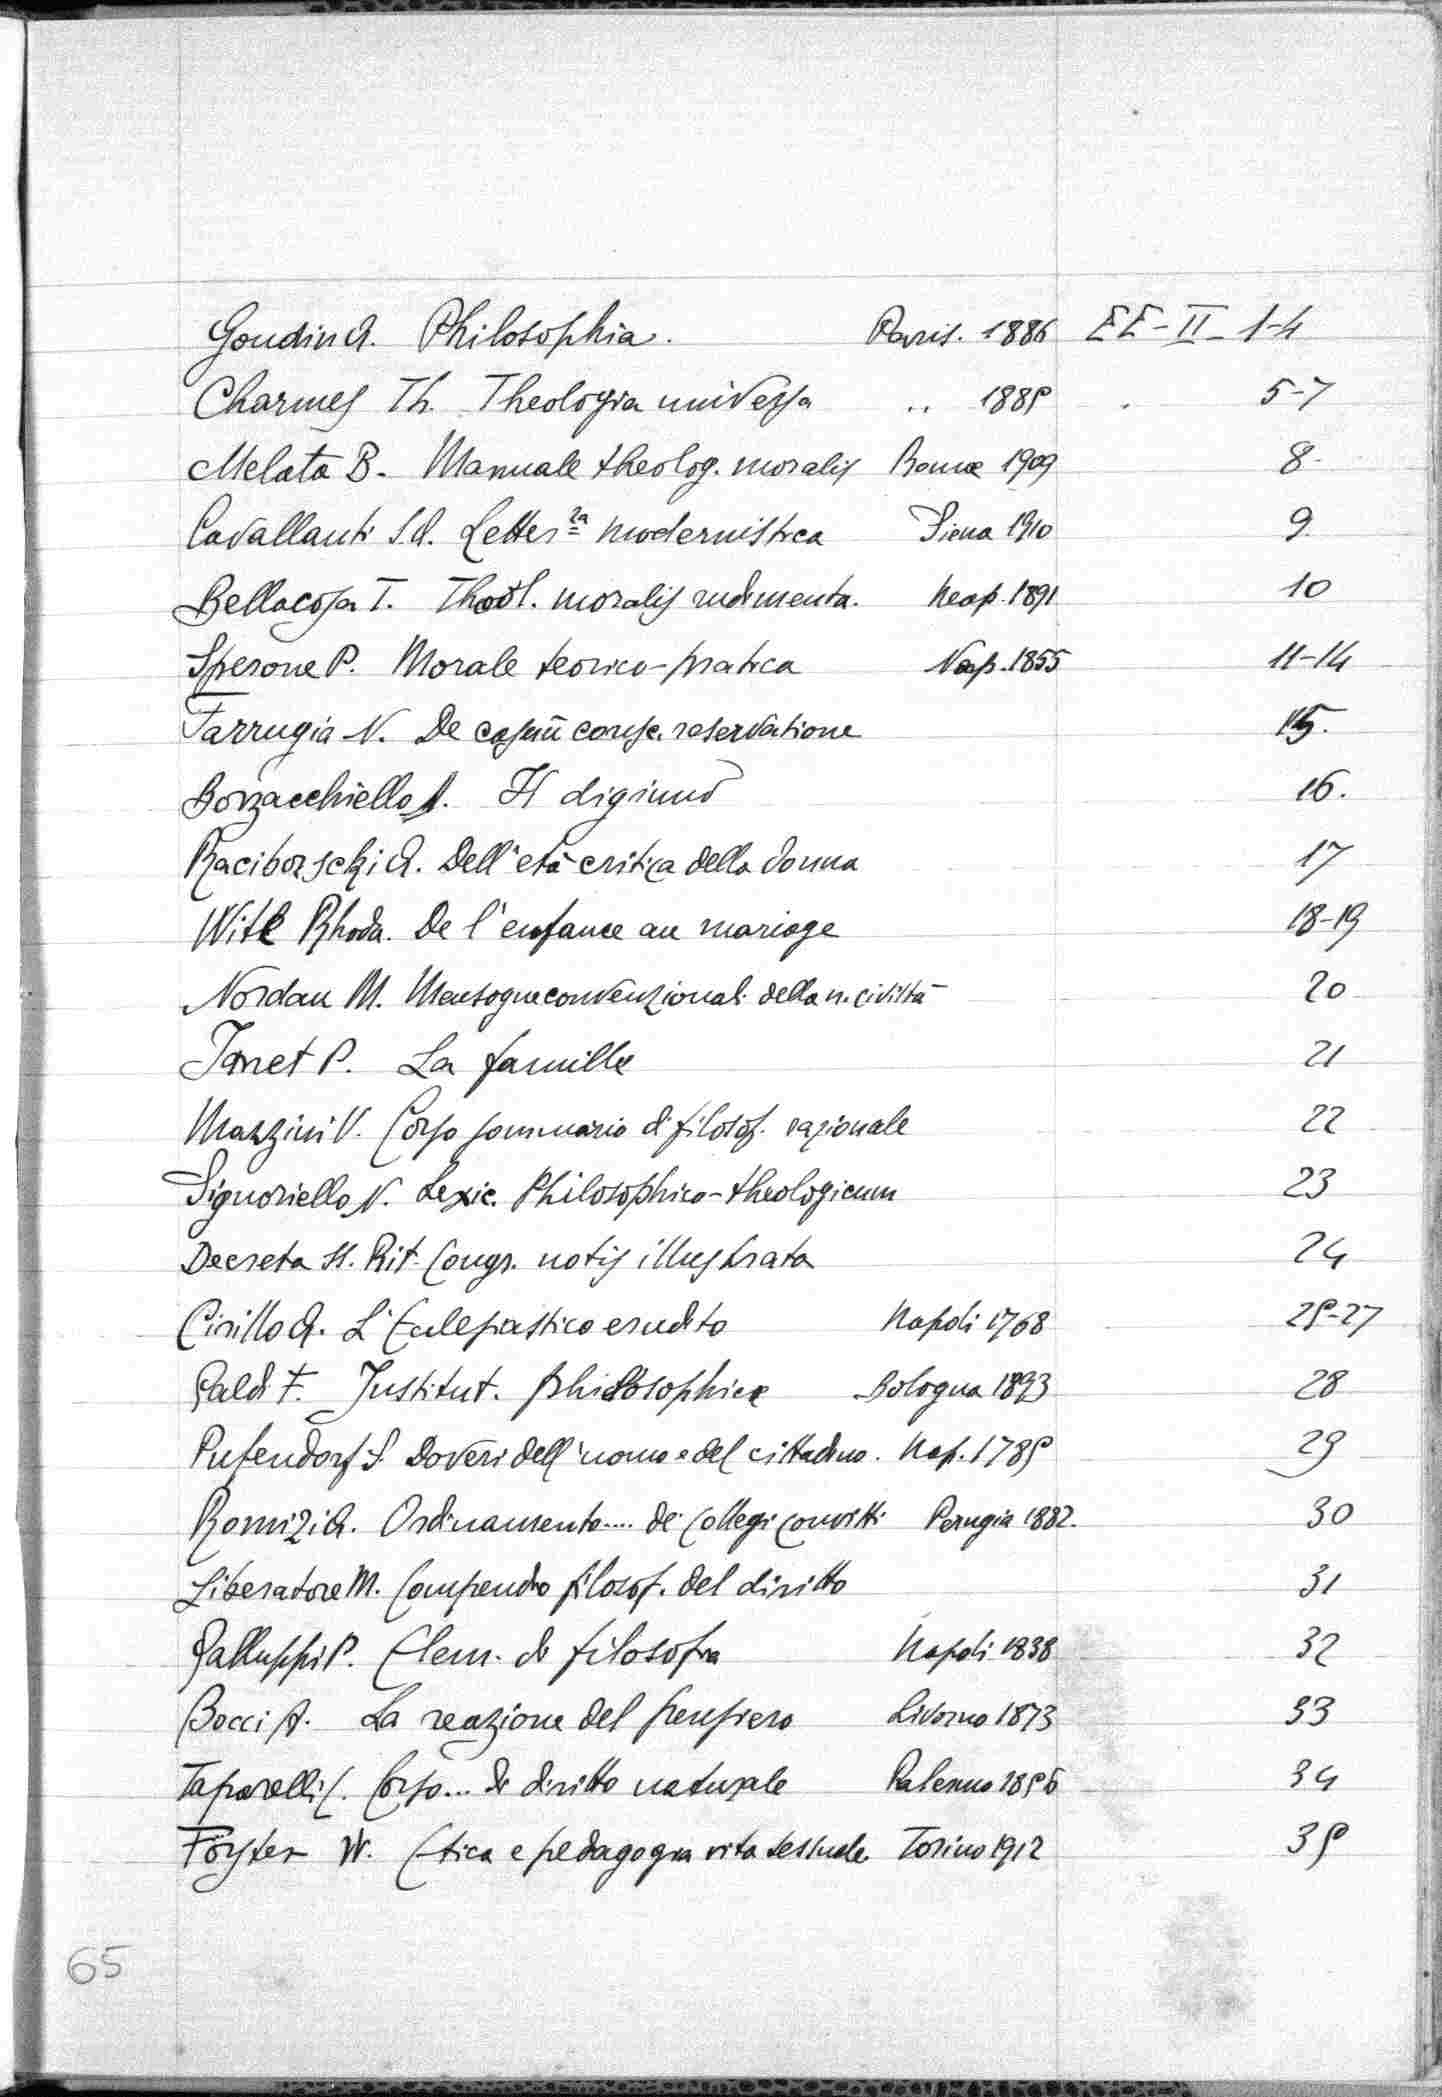 Goudin A. Philosophia. Paris. 1886 EE-II- 1-4
Charmes Th. Theologia universa ,, 1885 5-7
Melata B. Manuale theolog. moralis Romæ 1909 8-
Cavallanti S.A. Letter.ra modernistica Siena 1910 9.
Bellacosa T. Theol. moralis rudimenta. Neap. 1891 10
Sperone P. Morale teorico-pratica Nap. 1855 11-14
Farrugia N. De casuū consc. reservatione 15.
Borzacchiello A. Il digiuno 16.
Raciborschi A. Dell'età critica della donna 17
Witt Rhoda. De l'enfance au mariage 18-19
Nordau M. Mensogne convenzionali della n. civiltà 20
Janet P. La famille 21
Mazzini V. Corso sommario di filosof. razionale 22
Signoriello N. Lexic. Philosophico-theologicum 23
Decreta SS. Rit. Congr. notis illustrata 24
Cirillo A. L'Ecclesiastico erudito Napoli 1768 25-27
Galdi F. Institut. philosophicæ Bologna 1893 28
Pufendorf S. Doveri dell'uomo e del cittadino. Nap. 1785 29
Romizi A. Ordinamento.... dei Collegi Convitti Perugia 1882. 30
Liberatore M. Compendio filosof. del diritto 31
Galluppi P. Elem. di filosofia Napoli 1838 32
Bocci A. La reazione del pensiero Livorno 1873 33
Taparelli C. Corso... di diritto naturale Palermo 1856 34
Förster W. Etica e pedagogia vita sessuale Torino 1912 35
65